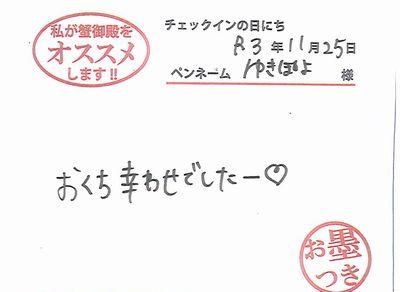 私が蟹御殿を
オススメ
します!!
チェックインの日にち
R3年11月25日
ペンネーム ゆきぽよ 様
おくち幸わせでしたー♡
お墨
つき